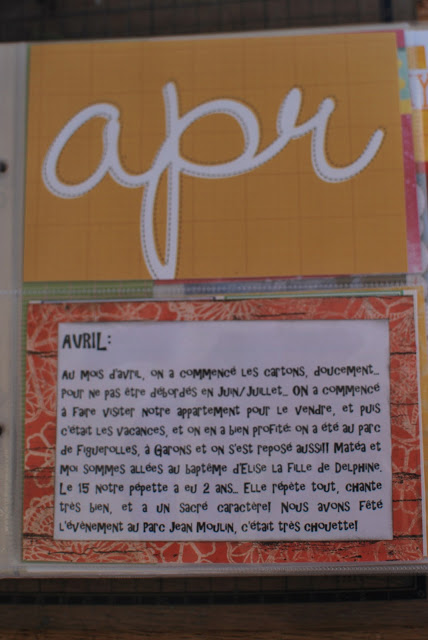 apr
AVRIL:
Au mois d'avril, on a commencé les cartons, doucement...
pour ne pas être débordés en Juin/Juillet... On a commencé
à faire visiter notre appartement pour le vendre, et puis
c'était les vacances, et on en a bien profité: on a été au parc
de Figuerolles, à Garons et on s'est reposé aussi!! Matéa et
moi sommes allées au baptême d'Elise la fille de Delphine.
Le 15 notre pépette a eu 2 ans... Elle répète tout, chante
très bien, et a un sacré caractère! Nous avons fêté
l'évènement au parc Jean Moulin, c'était très chouette!